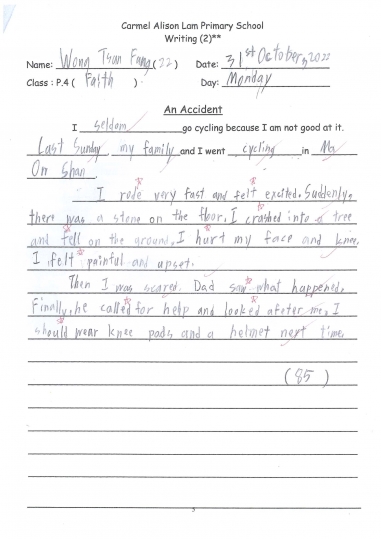 Carmel Alison Lam Primary School
Writing (2)**
Name: Wong Tsun Fung (22) Date: 31st October, 2022
Class : P.4 ( Faith ) Day: Monday
An Accident
I seldom go cycling because I am not good at it.
Last Sunday, my family and I went cycling in Ma
On Shan.
I rode very fast and felt excited. Suddenly,
there was a stone on the floor. I crashed into a tree
and fell on the ground. I hurt my face and knee.
I felt painful and upset.
Then I was scared. Dad saw what happened.
Finally, he called for help and looked afeter me. I
should wear knee pads and a helmet next time.
(85)
3